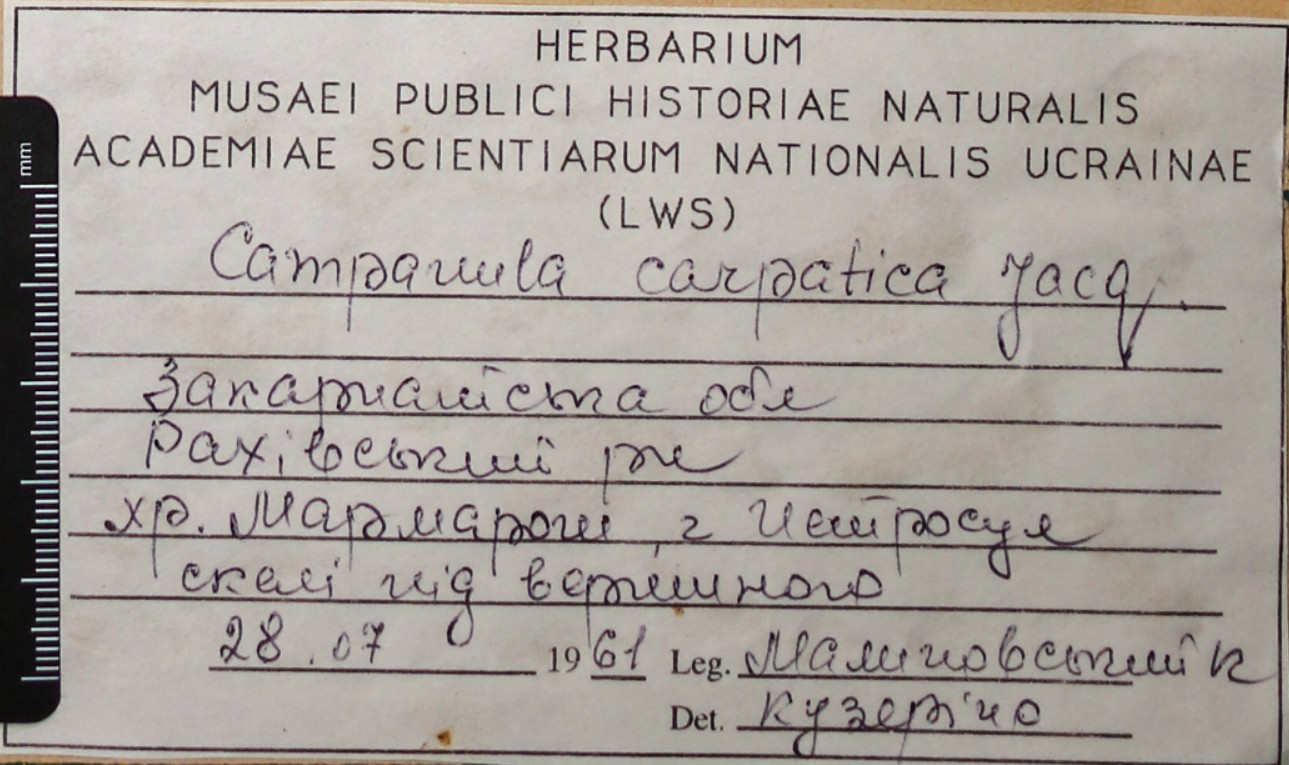 HERBARIUM
MUSAEI PUBLICI HISTORIAE NATURALIS
ACADEMIAE SCIENTIARUM NATIONALIS UCRAINAE
(LWS)
Campanula carpatica Jacq.
Закарпатська обл
Рахівський рн
хр. Мармарош, г Петросул
скелі під вершиною
28.07 1961 Leg. Малиновський К
Det. Кузяр'
mm